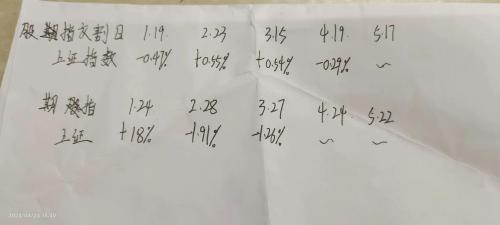 股期指交割日 1.19 2.23 3.15 4.19 5.17
上证指数 -0.47% +0.55% +0.54% -0.29% ~
期 指 1.24 2.28 3.27 4.24 5.22
上证 +1.8% -1.91% -1.26% ~ ~